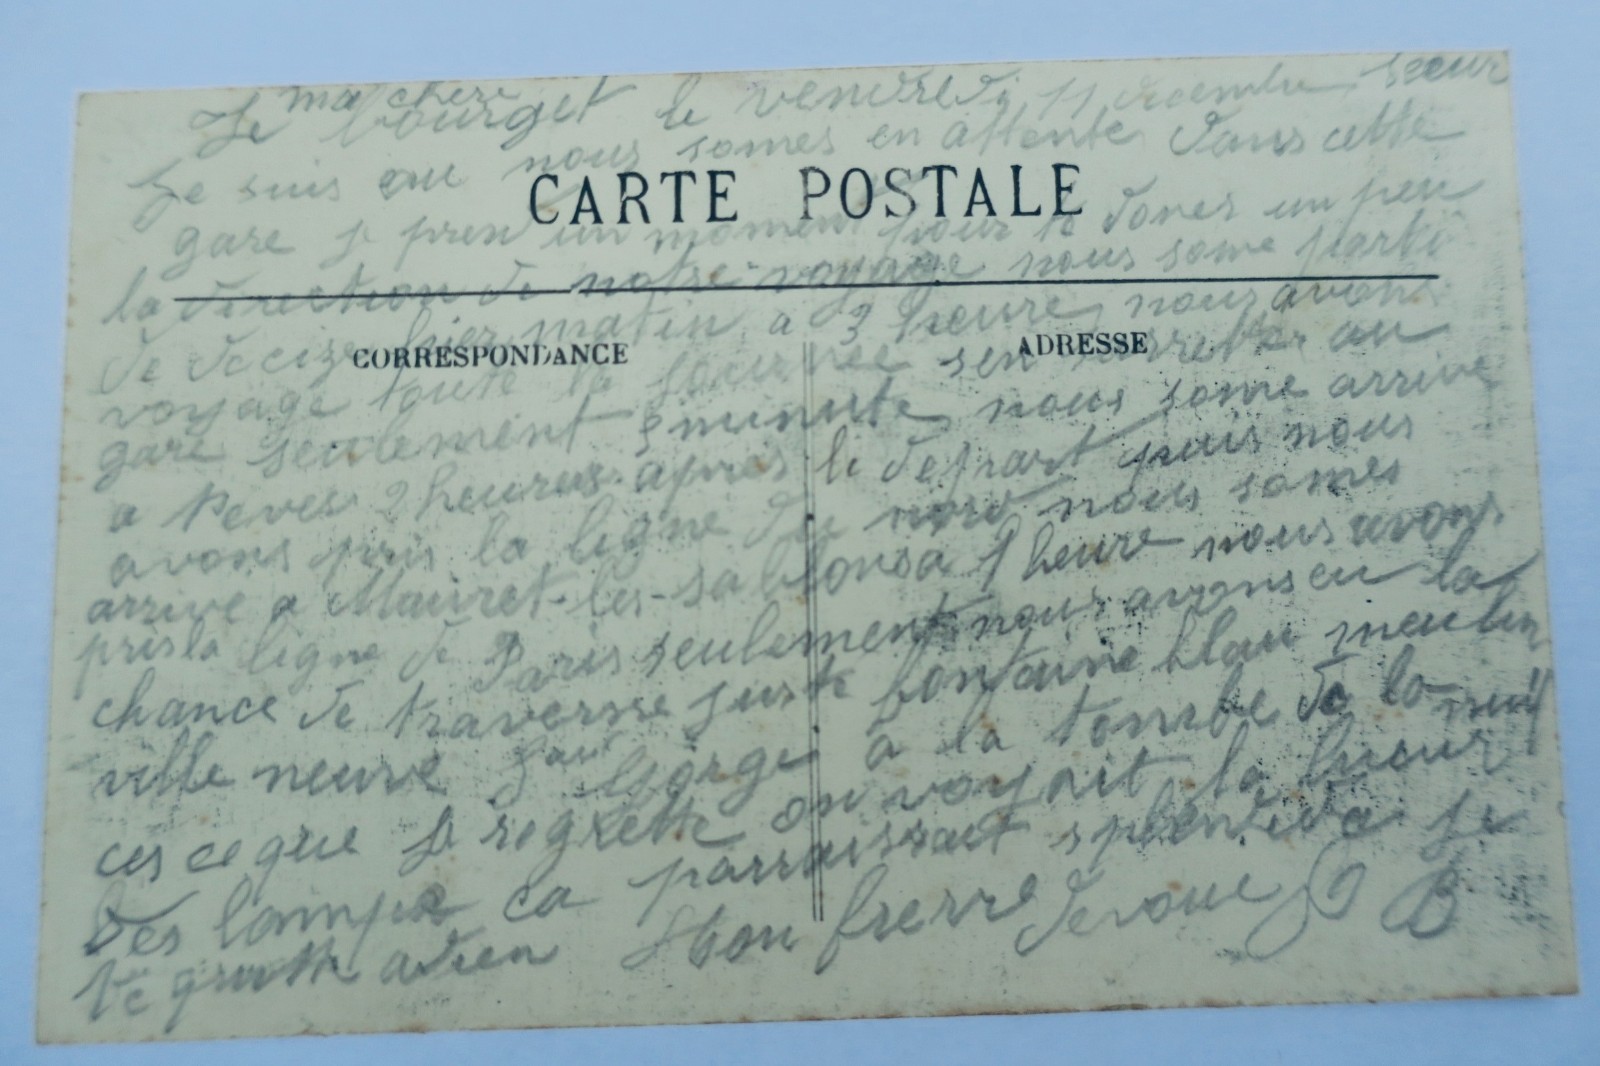 Le bourget le vendredi 11 decembre
ma chere soeur
Je suis nous somes en attente dans cette
CARTE POSTALE
gare je pren un moment pour te doner un peu
la direction de notre voyage nous some parti
de decize hier matin a 3 heure nous avons
CORRESPONDANCE
ADRESSE
voyage toute la journee sen arretter au
gare seulement 3 minute nous some arrive
a Neves 2 heures apres le depart puis nous
avons pris la ligne du nord nous somes
arrive a Mauret-les-sablons a 1 heure nous avons
pris la ligne de Paris seulement nous avons eu la
chance de traverse juste fontaine blau meulun
ville neuve Saint Gorge a la tombe de la nuit
ces ce que je regrette on voyait la lueur
des lampe ca parraissait splendide je
te quitte adieu Ston frerre devoue J B